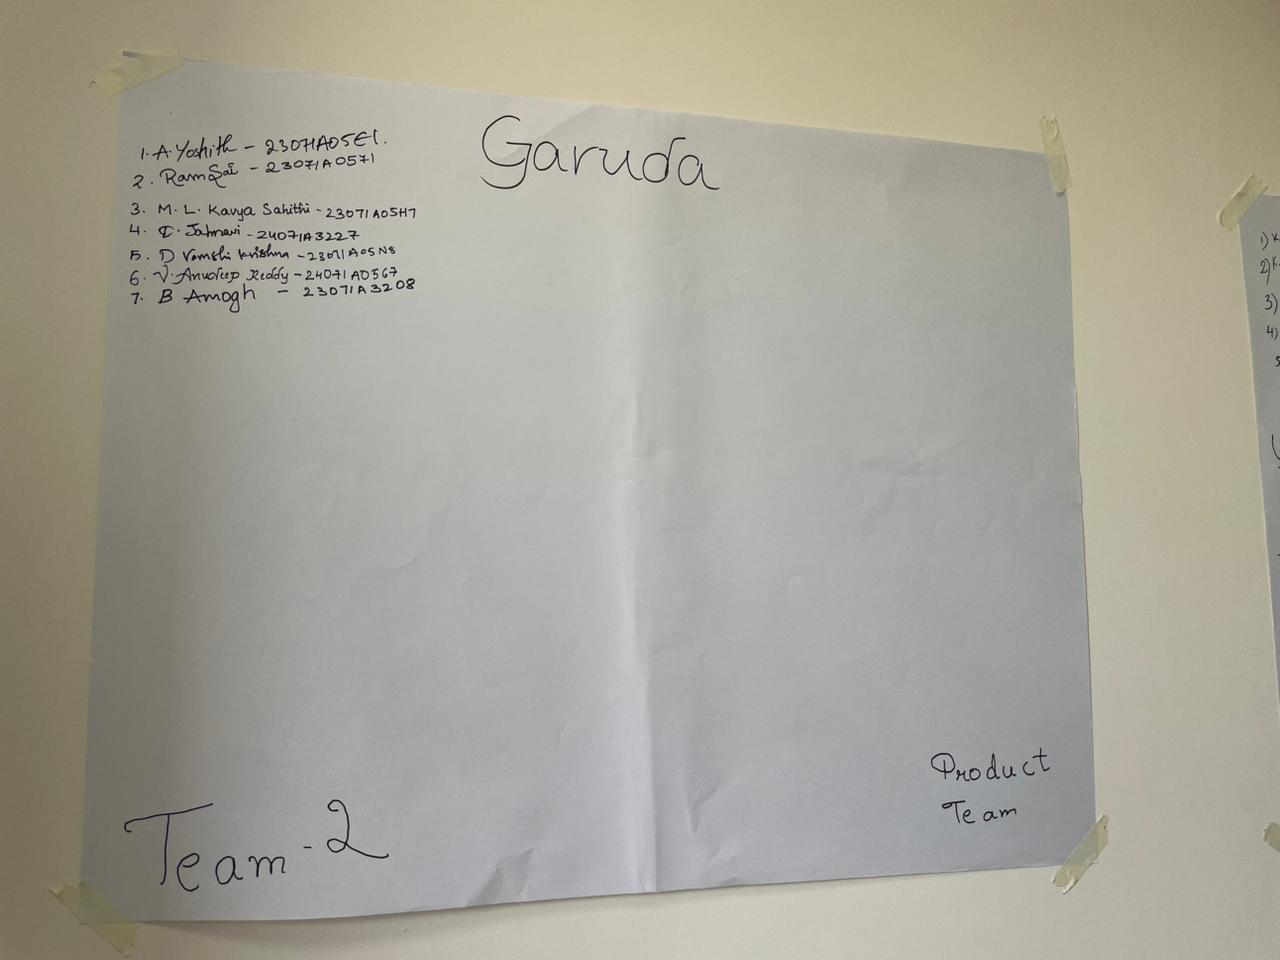 Garuda
1. A. Yoshith - 23071A05E1.
2. Ram Sai - 23071A0571
3. M. L. Kavya Sahithi - 23071A05H7
4. D. Jahnavi - 24071A3227
5. D Vamshi krishna - 23071A05N8
6. V. Anudeep Reddy - 24071A0567
7. B Amogh - 23071A3208
Product
Team
Team - 2
1) K
2) K.
3)
4)